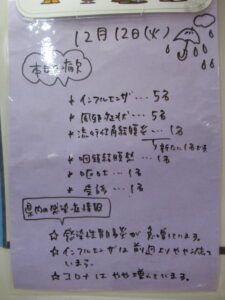 12月12日(火)
本日の病欠
* インフルエンザ・・・5名
* 風邪症状・・・5名
* 流行性角結膜炎・・・1名
* 咽頭結膜熱・・・1名
* 嘔吐・・・1名
* 受診・・・1名
県内の感染症情報
☆ 感染性胃腸炎が急増しています。
☆ インフルエンザは前週よりやや減って
います。
☆ コロナはやや増えています。